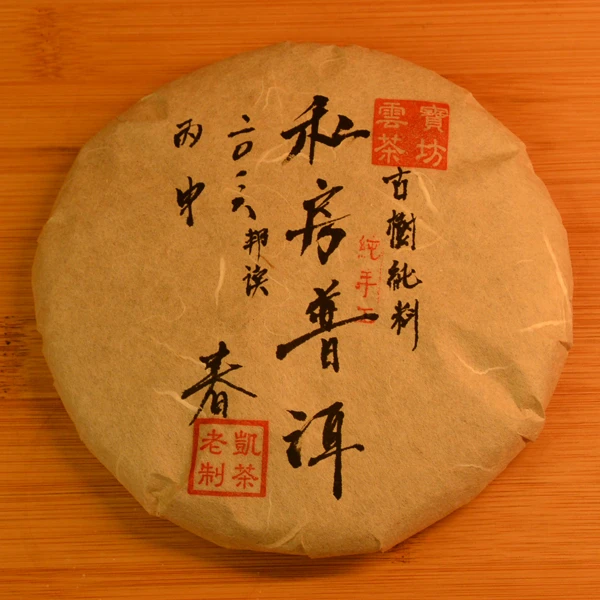 寶坊
雲茶
古樹純料
純手工
私房普洱
二〇一六
邦
丙申
春
凱茶
老制